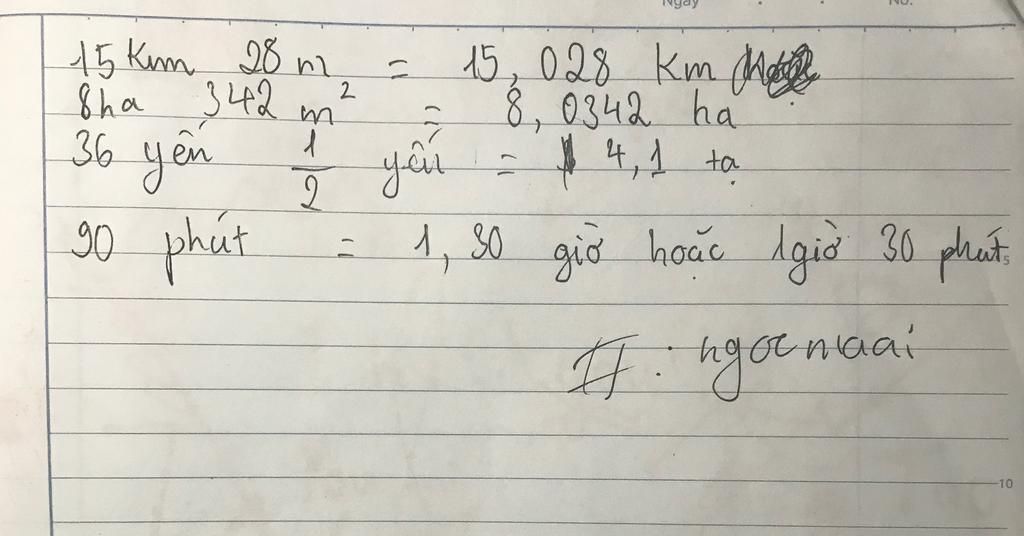 Ngày
No.
15 Km 28 m = 15,028 Km
8ha 342 m² = 8,0342 ha
36 yến 1/2 yến = 4,1 tạ
90 phút = 1,30 giờ hoặc 1giờ 30 phút
5
#: ngocmaai
10